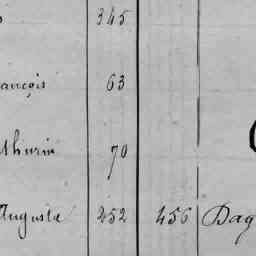 345
ançois 63
thurin 70
Auguste 252 456 Dag